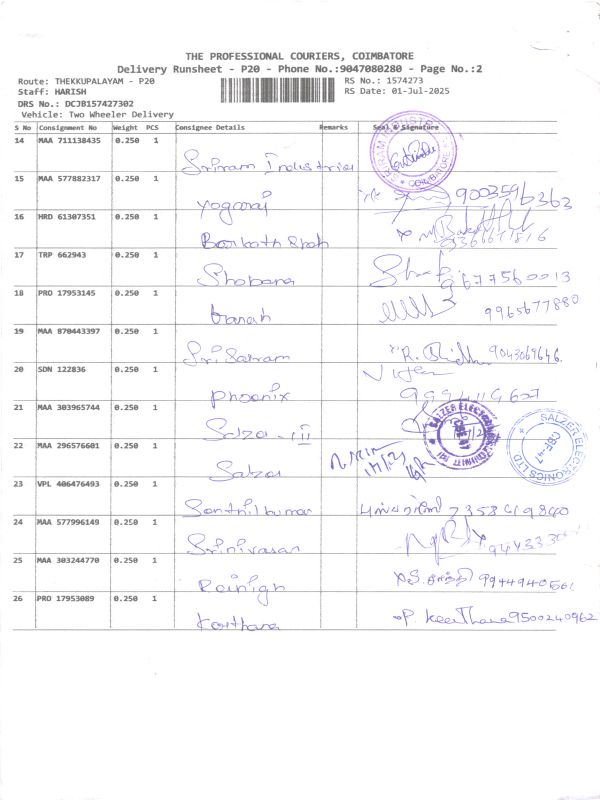 THE PROFESSIONAL COURIERS, COIMBATORE
Delivery Runsheet - P20 - Phone No.:9047080280 - Page No.:2
Route: THEKKUPALAYAM - P20 RS No.: 1574273
Staff: HARISH RS Date: 01-Jul-2025
DRS No.: DCJB157427302
Vehicle: Two Wheeler Delivery
S No Consignment No Weight PCS Consignee Details Remarks Seal & Signature
14 MAA 711138435 0.250 1
Sriram Industries
15 MAA 577882317 0.250 1
yogaraj 9003596363
16 HRD 61307351 0.250 1
17 TRP 662943 0.250 1
Shobana 9677560013
18 PRO 17953145 0.250 1
9965677880
19 MAA 870443397 0.250 1
Sri Sairam R. 9043069646.
20 SDN 122836 0.250 1
Phoenix
21 MAA 303965744 0.250 1
SALZER ELECTRONICS LTD
CBE-47
22 MAA 296576601 0.250 1
23 VPL 406476493 0.250 1
Senthilkumar 7358419840
24 MAA 577996149 0.250 1
Srinivasan
25 MAA 303244770 0.250 1
9944940561
26 PRO 17953089 0.250 1
Keerthana P. Keerthana 9500240962